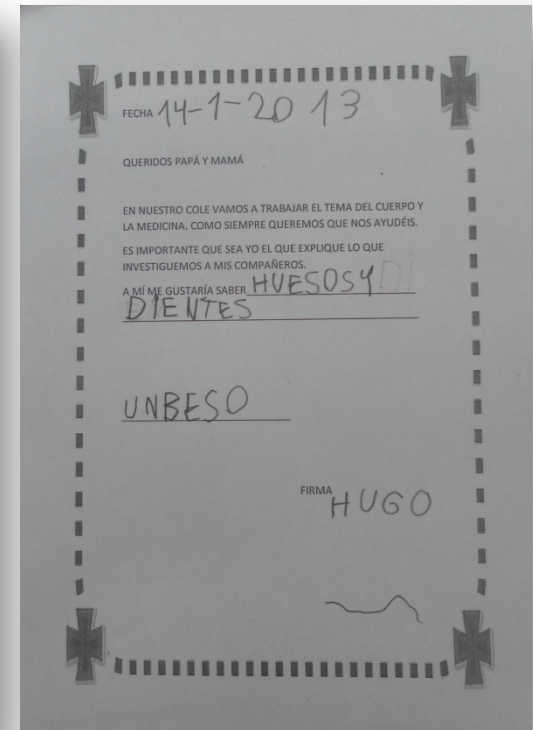 FECHA 14-1-2013
QUERIDOS PAPÁ Y MAMÁ
EN NUESTRO COLE VAMOS A TRABAJAR EL TEMA DEL CUERPO Y
LA MEDICINA. COMO SIEMPRE QUEREMOS QUE NOS AYUDÉIS.
ES IMPORTANTE QUE SEA YO EL QUE EXPLIQUE LO QUE
INVESTIGUEMOS A MIS COMPAÑEROS.
A MÍ ME GUSTARÍA SABER HUESOS Y DI
DIENTES
UN BESO
FIRMA HUGO